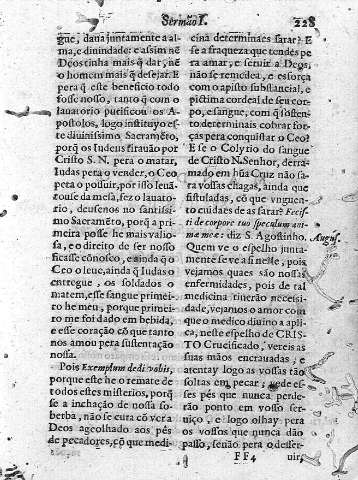 Sermão I. 228
gue, dava juntamente a al-
ma, e divindade: e assim nẽ
Deos tinha mais q̃ dar, nẽ
o homem mais q̃ desejar. E
pera q̃ este beneficio todo
fosse nosso, tanto q̃ com o
lauatorio purificou os A-
postolos, logo instituyo es-
te diuinissimo Sacramẽto,
porq̃ os Iudeus tirauão por
Cristo S. N. pera o matar,
Iudas pera o vender, o Ceo
pera o possuir, por isso leuã
touse da mesa, fez o lauato-
rio, deusenos no santissi-
mo Sacramẽto, porq̃ a pri-
meira posse he mais valio-
sa, e o direito de ser nosso
ficasse cõnosco, e ainda q̃ o
Ceo o leue, ainda q̃ Iudas o
entregue, os soldados o
matem, esse sangue primei-
ro he meu, porque primei-
ro me foi dado em bebida,
e esse coração cõ que tanto
nos amou pera sustentação
nossa.
Pois Exemplum dedi vobis,
porque este he o remate de
todos estes misterios, porq̃
se a inchação de nossa so-
berba, não se cura cõ ver a
Deos ageolhado aos pés
de pecadores, cõ que medi-
cina determinaes sarar? E
se a fraqueza que tendes pe
ra amar, e seruir a Deos,
não se remedea, e esforça
com o apisto substancial, e
pictima cordeal de seu cor-
po, e sangue, com q̃ sosten-
to determinais cobrar for-
ças pera conquistar o Ceo?
E se o Colyrio do sangue
de Cristo N. Senhor, derra-
mado em hũa Cruz não sa-
ra vossas chagas, ainda que
fistuladas, cõ que vnguen-
to cuidaes de as sarar? Fecis-
ti de corpore tuo speculum ani-
mæ meæ: diz S. Agostinho. August.
Quem ve o espelho junta-
mente se ve a si nelle, pois
vejamos quaes são nossas
enfermidades, pois de tal
medicina tiuerão necessi-
dade, vejamos o amor com
que o medico diuino a apli
ca, neste espelho de CRIS-
TO Crucificado, vereis as
suas mãos encrauadas; e
atentay logo as vossas tão
soltas em pecar; vede es-
ses pés que nunca perde-
rão ponto em vosso ser-
uiço, e logo olhay pera
os vossos que nunca dão
passo, senão pera o desser-
FF4 uir,